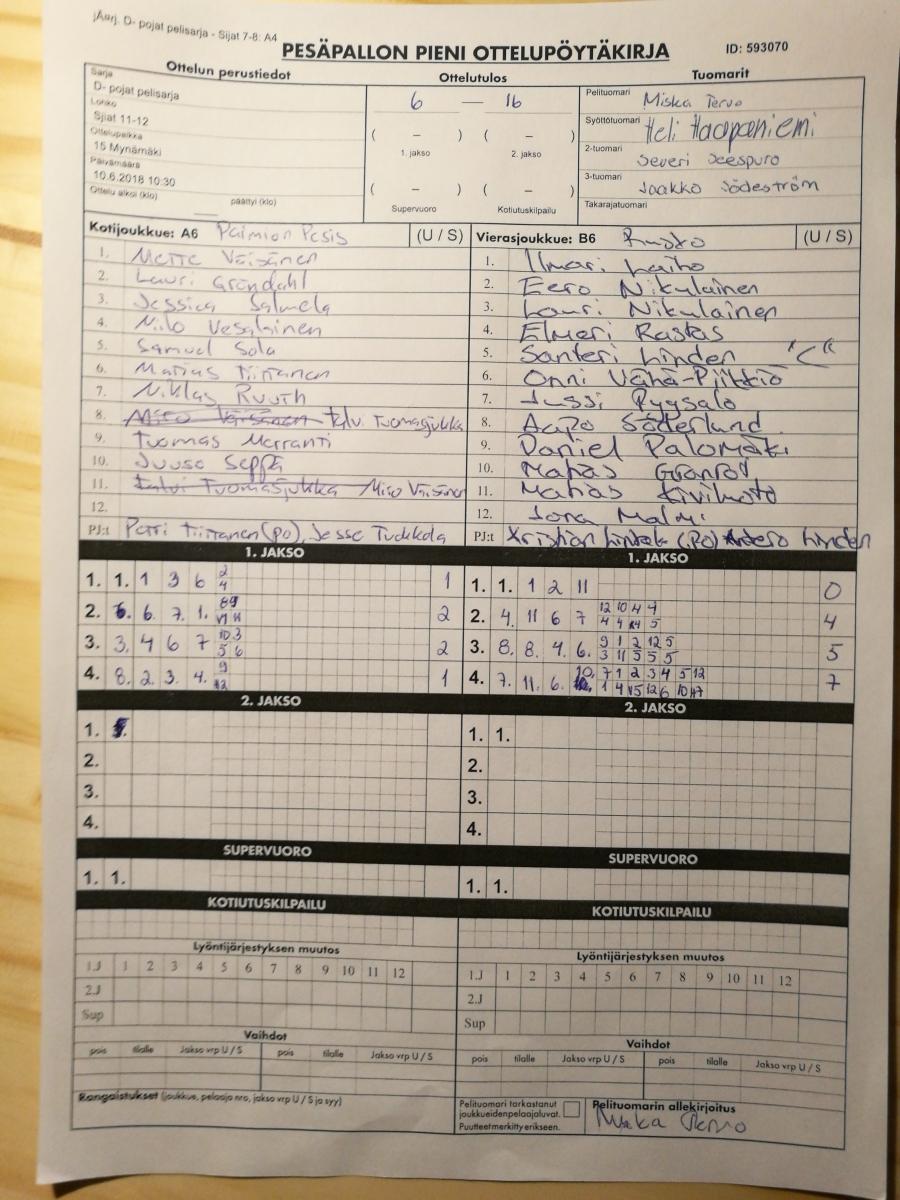 jÄsrj. D- pojat pelisarja - Sijat 7-8: A4
PESÄPALLON PIENI OTTELUPÖYTÄKIRJA
ID: 593070
Ottelun perustiedot
Ottelutulos
Tuomarit
Sarja
D- pojat pelisarja
Lohko
Sjiat 11-12
Ottelupaikka
15 Mynämäki
Päivämäärä
10.6.2018 10:30
Ottelu alkoi (klo) päättyi (klo)
6 — 16
( – ) ( – )
1. jakso 2. jakso
( – ) ( – )
Supervuoro Kotiutuskilpailu
Pelituomari Miska Tervo
Syöttötuomari Heli Haapaniemi
2-tuomari Severi Seespuro
3-tuomari Jaakko Södeström
Takarajatuomari
Kotijoukkue: A6 Paimion Pesis (U / S)
1. Mette Väisänen
2. Lauri Gröndahl
3. Jessica Salmela
4. Niilo Vesalainen
5. Samuel Sola
6. Matias Tiittanen
7. Niklas Ruuth
8. Miro Väisänen Talvi Tuomasjukka
9. Tuomas Merranti
10. Juuso Seppä
11. Talvi Tuomasjukka Miro Väisänen
12.
PJ:t Petri Tiittanen (PO), Jesse Tuckkola
Vierasjoukkue: B6 Rusko (U / S)
1. Ilmari Laiho
2. Eero Nikulainen
3. Lauri Nikulainen
4. Elmeri Rastas
5. Santeri Linden "C"
6. Onni Vähä-Piikkiö
7. Jussi Pyysalo
8. Aapo Söderlund
9. Daniel Palomäki
10. Matias Granrot
11. Matias Kivilusto
12. Joona Malmi
PJ:t Kristian (PO) Antero Linden
1. JAKSO
1. 1. 1 3 6 2 4 1
2. 6. 7. 1. 8 9 2
3. 3. 4 6 7 10 3 5 6 2
4. 8. 2. 3. 4. 9 12 1
1. JAKSO
1. 1. 1 2 11 0
2. 4. 11 6 7 12 10 4 4 4
3. 8. 8. 4. 6. 9 1 2 12 5 3 11 5 5 5 5
4. 7. 11. 6. 10. 7 1 2 3 4 5 12 7
2. JAKSO
1.
2.
3.
4.
2. JAKSO
1. 1.
2.
3.
4.
SUPERVUORO
1. 1.
SUPERVUORO
1. 1.
KOTIUTUSKILPAILU
KOTIUTUSKILPAILU
Lyöntijärjestyksen muutos
1.J 1 2 3 4 5 6 7 8 9 10 11 12
2.J
Sup
Lyöntijärjestyksen muutos
1.J 1 2 3 4 5 6 7 8 9 10 11 12
2.J
Sup
Vaihdot
pois tilalle Jakso vrp U / S pois tilalle Jakso vrp U / S
Vaihdot
pois tilalle Jakso vrp U / S pois tilalle Jakso vrp U / S
Rangaistukset (joukkue, pelaaja nro, jakso vrp U / S ja syy)
Pelituomari tarkastanut
joukkueidenpelaajaluvat.
Puutteetmerkittyerikseen.
Pelituomarin allekirjoitus
Miska Tervo